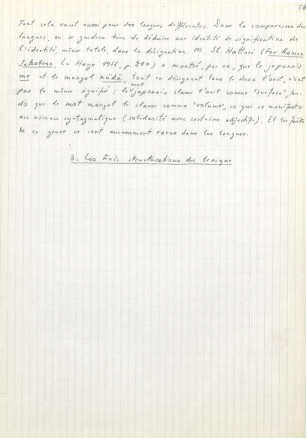 Tout cela vaut aussi pour des langues différentes. Dans la comparaison des
langues, on se gardera bien de déduire une identité de signification de
l'identité, même totale, dans la désignation. M. Sh. Hattori (For Roman
Jakobson, La Haye 1956, p. 290) a montré, par ex., que le japonais
me et le mongol nüdü, tout en désignant tous les deux l'œil, n'ont
pas le même signifié: le mot japonais classe l'œil comme 'surface', tan-
dis que le mot mongol le classe comme 'volume', ce qui se manifeste
au niveau syntagmatique (solidarité avec certains adjectifs). Et les faits
de ce genre ne sont aucunement rares dans les langues.
3. Les trois structurations du lexique